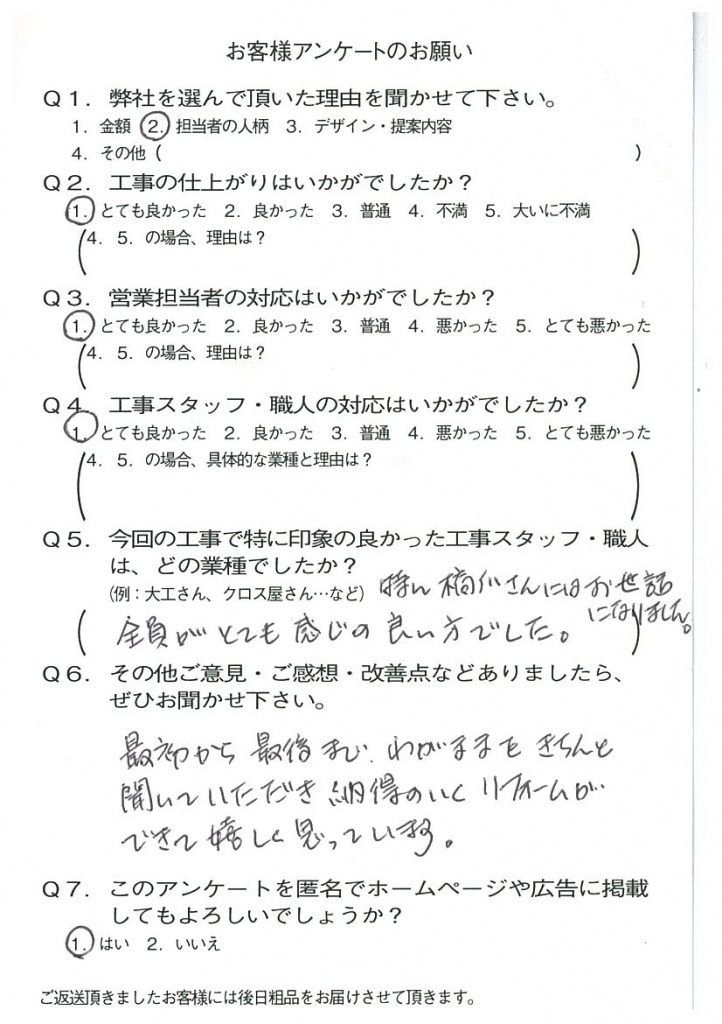 お客様アンケートのお願い
Q1. 弊社を選んで頂いた理由を聞かせて下さい。
1. 金額 2. 担当者の人柄 3. デザイン・提案内容
4. その他 ( )
Q2. 工事の仕上がりはいかがでしたか?
1. とても良かった 2. 良かった 3. 普通 4. 不満 5. 大いに不満
(4. 5. の場合、理由は? )
Q3. 営業担当者の対応はいかがでしたか?
1. とても良かった 2. 良かった 3. 普通 4. 悪かった 5. とても悪かった
(4. 5. の場合、理由は? )
Q4. 工事スタッフ・職人の対応はいかがでしたか?
1. とても良かった 2. 良かった 3. 普通 4. 悪かった 5. とても悪かった
(4. 5. の場合、具体的な業種と理由は? )
Q5. 今回の工事で特に印象の良かった工事スタッフ・職人
は、どの業種でしたか?
(例:大工さん、クロス屋さん…など) 特に さんにはお世話
になりました。
(全員がとても感じの良い方でした。 )
Q6. その他ご意見・ご感想・改善点などありましたら、
ぜひお聞かせ下さい。
最初から最後まで、わがままをきちんと
聞いていただき納得のいくリフォームが
できて嬉しく思っています。
Q7. このアンケートを匿名でホームページや広告に掲載
してもよろしいでしょうか?
1. はい 2. いいえ
ご返送頂きましたお客様には後日粗品をお届けさせて頂きます。